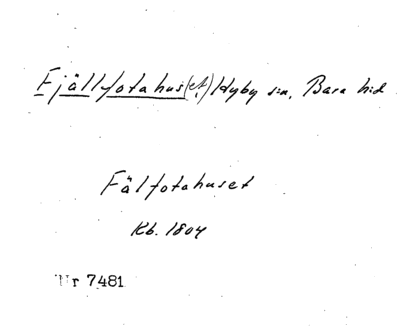 Fjällfotahus(et) Hyby sn, Bara hd
Fälfotahuset
Kb. 1804
Nr 7481